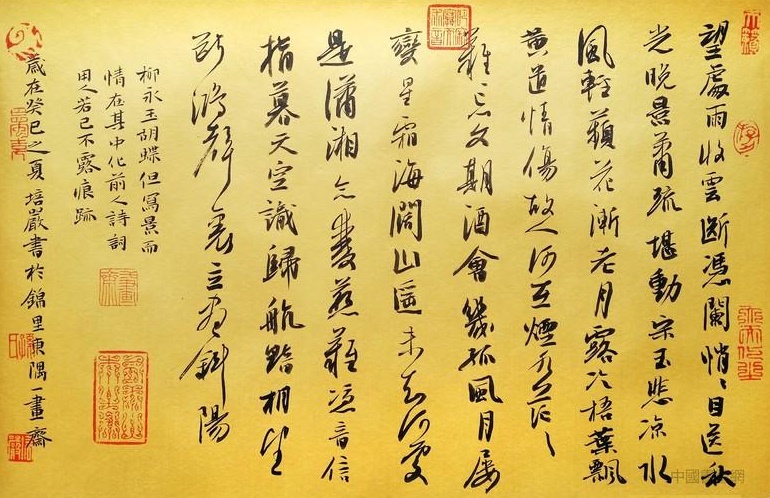 望處雨收雲斷憑闌悄〻目送秋
光晚景蕭疏堪動宋玉悲凉水
風輕蘋花漸老月露冷梧葉飄
黄遣情傷故人何在煙水茫〻
難忘文期酒會幾孤風月屢
變星霜海闊山遥未知何處
是瀟湘念雙燕難憑音信
指暮天空識歸航黯相望
斷鴻聲裏立盡斜陽
柳永玉胡蝶但寫景而
情在其中化前人詩詞
用人若己不露痕跡
歲在癸巳之夏培嚴書於錦里東隅一畫齋